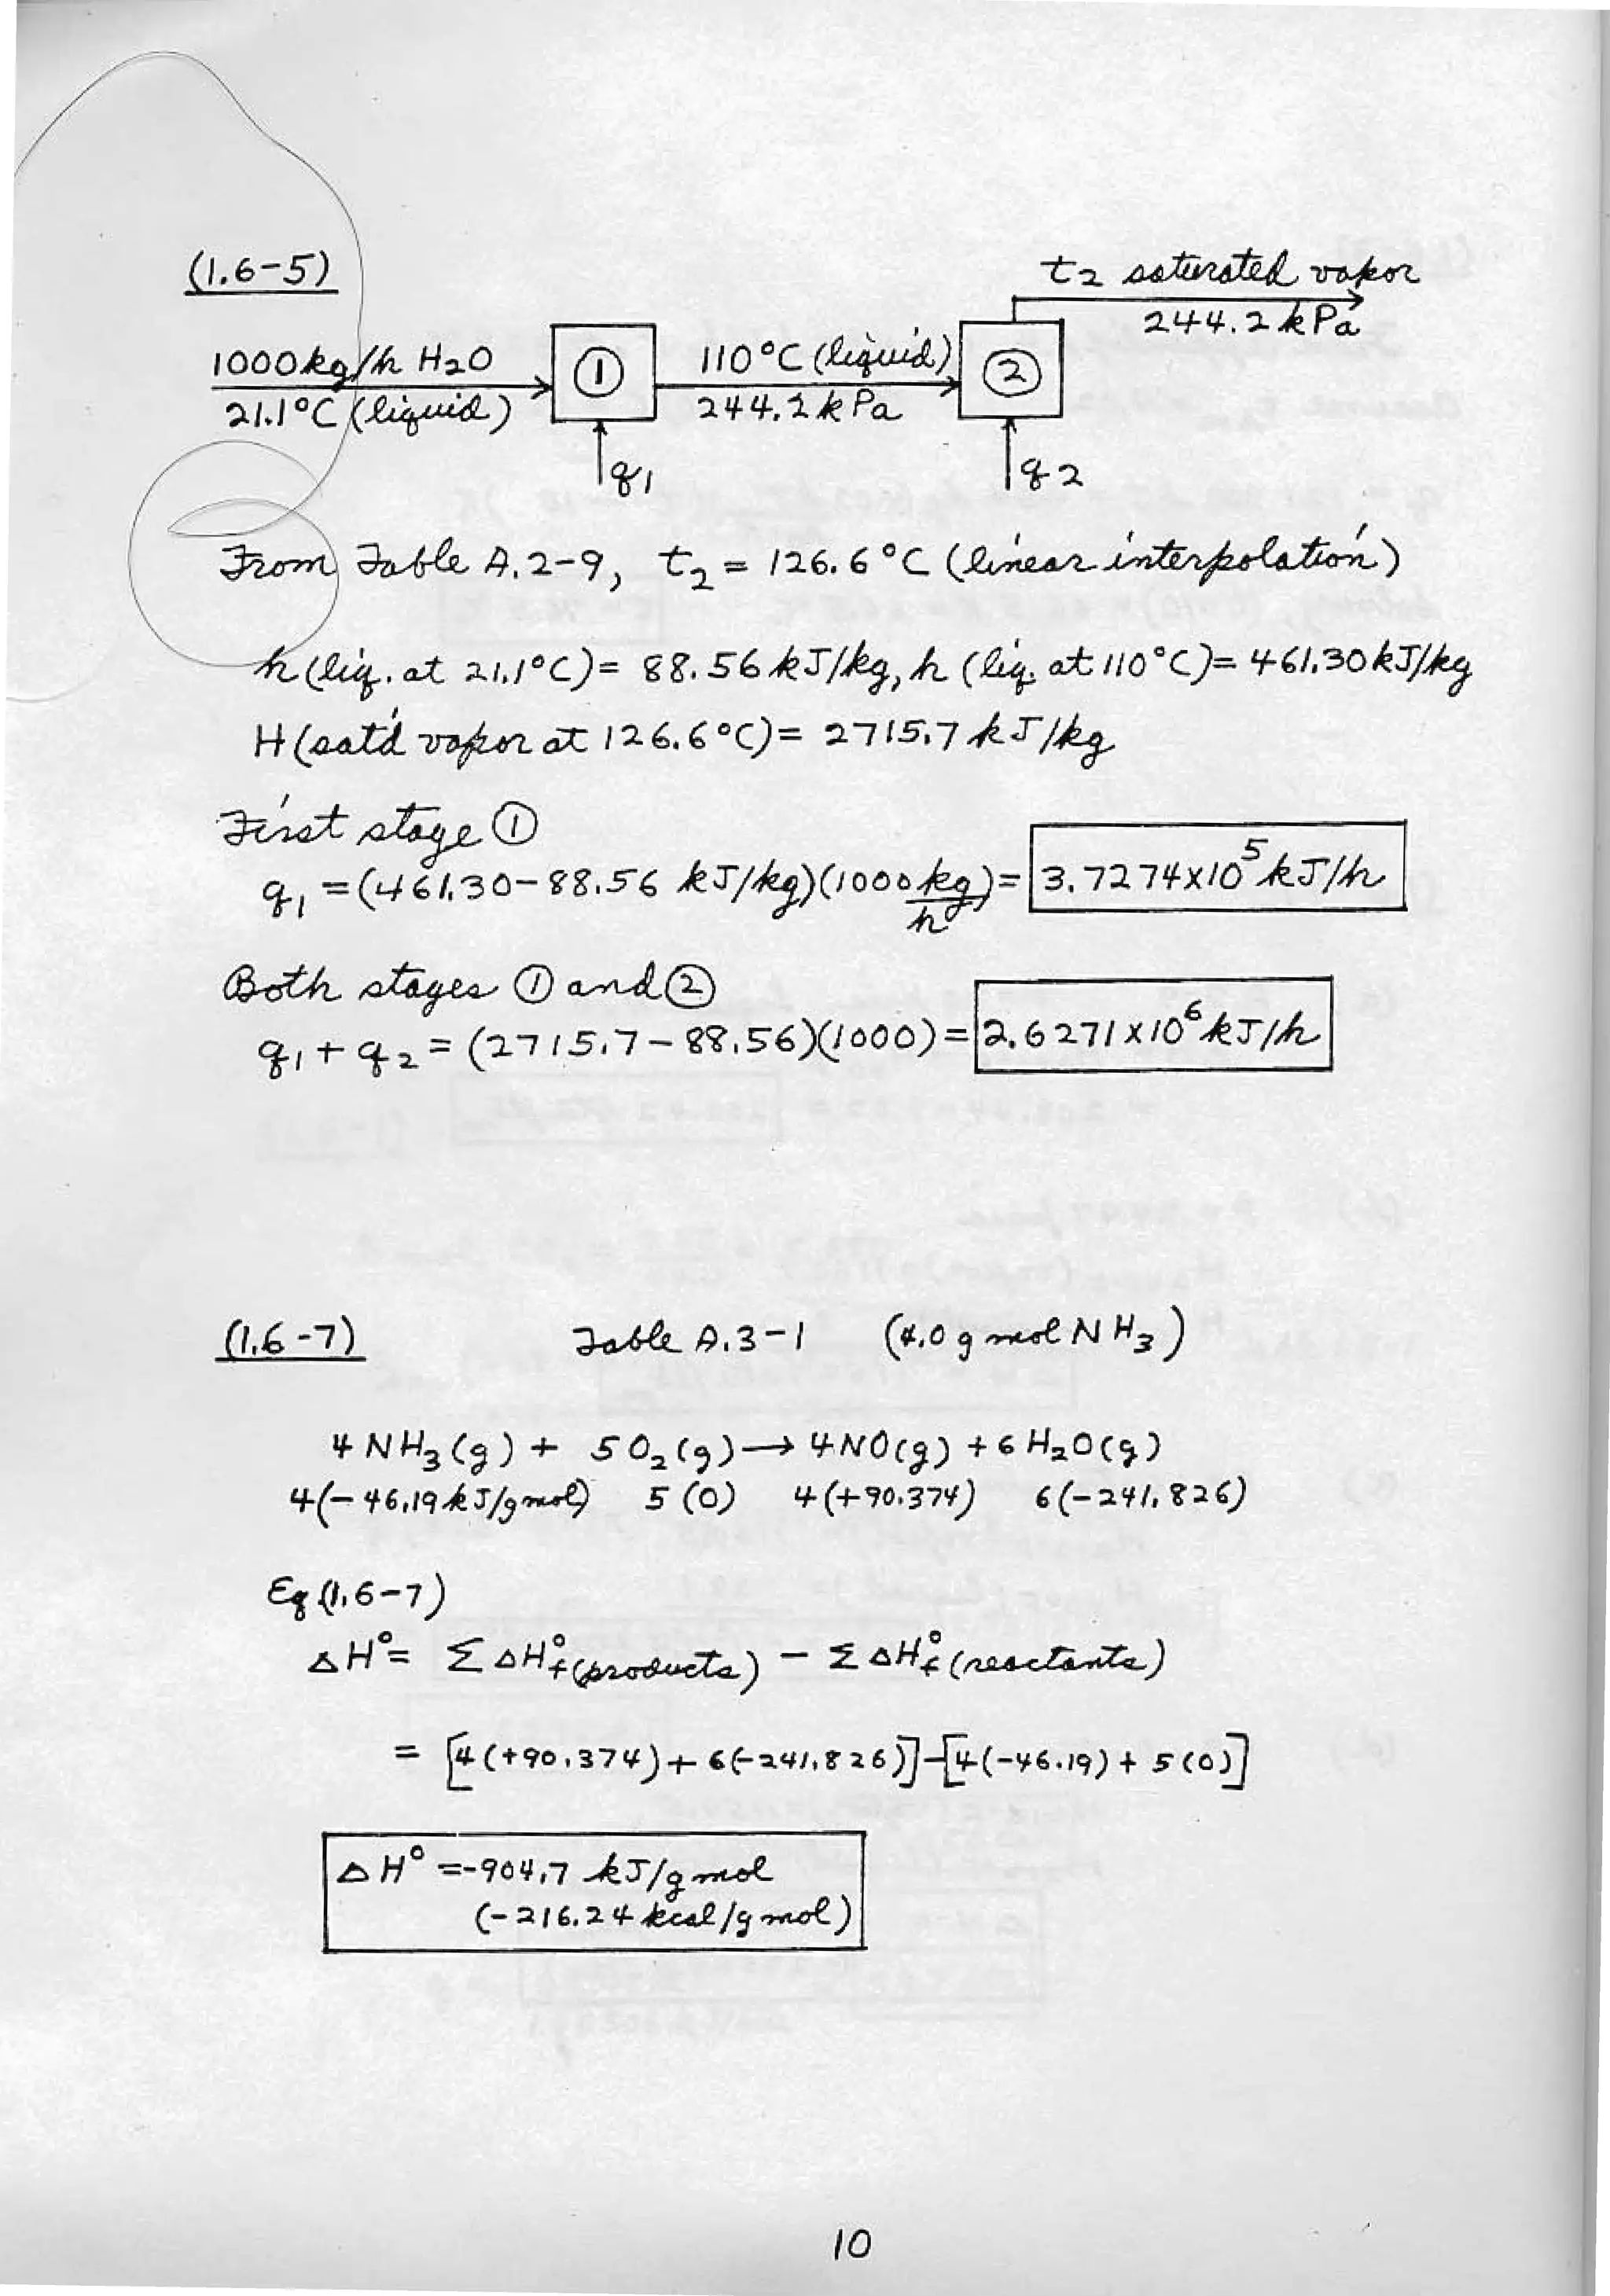 (1.6-5)
t2 saturated vapor
244.2 kPa
1000 kg/h H2O
21.1°C (liquid)
①
110°C (liquid)
244.2 kPa
②
q1
q2
From Table A.2-9, t2 = 126.6°C (linear interpolation)
h (liq. at 21.1°C) = 88.56 kJ/kg, h (liq. at 110°C) = 461.30 kJ/kg
H (sat'd vapor at 126.6°C) = 2715.7 kJ/kg
First stage ①
q1 = (461.30 - 88.56 kJ/kg)(1000 kg/h) = 3.7274x10^5 kJ/h
Both stages ① and ②
q1 + q2 = (2715.7 - 88.56)(1000) = 2.6271x10^6 kJ/h
(1.6-7) Table A.3-1 (4.0 g mol NH3)
4 NH3(g) + 5 O2(g) → 4NO(g) + 6 H2O(g)
4(-46.19 kJ/g mol) 5(0) 4(+90.374) 6(-241.826)
Eq (1.6-7)
ΔH° = Σ ΔH°f (products) - Σ ΔH°f (reactants)
= [4(+90.374) + 6(-241.826)] - [4(-46.19) + 5(0)]
ΔH° = -904.7 kJ/g mol
(-216.24 kcal/g mol)
10